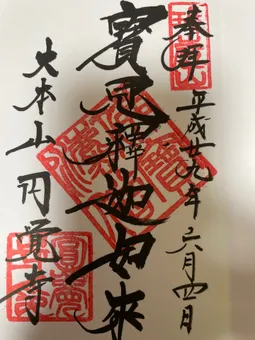 奉拝
平成廿九年六月四日
寶冠釋迦如来
大本山円覚寺